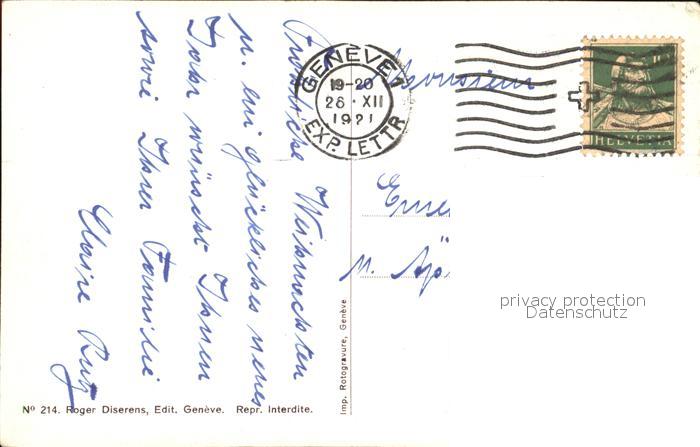 Fröhliche Weihnachten
u. ein glückliches neues
Jahr wünscht Ihnen
sowie Ihrer Familie
Claire Rutz
GENÈVE 1
19-20
26·XII
1921
EXP. LETTR.
HELVETIA
Monsieur
privacy protection
Datenschutz
Imp. Rotogravure, Genève.
Nº 214. Roger Diserens, Edit. Genève. Repr. Interdite.